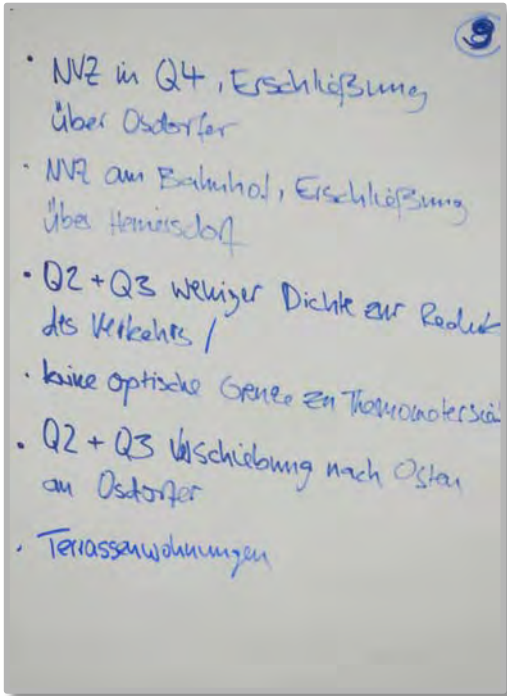 9
• NVZ in Q4, Erschließung
über Osdorfer
• NVZ am Bahnhof, Erschließung
über Heinersdorf
• Q2 + Q3 weniger Dichte zur Reduk
des Verkehrs /
• keine optische Grenze zu Thermometersied
• Q2 + Q3 Verschiebung nach Osten
an Osdorfer
• Terrassenwohnungen